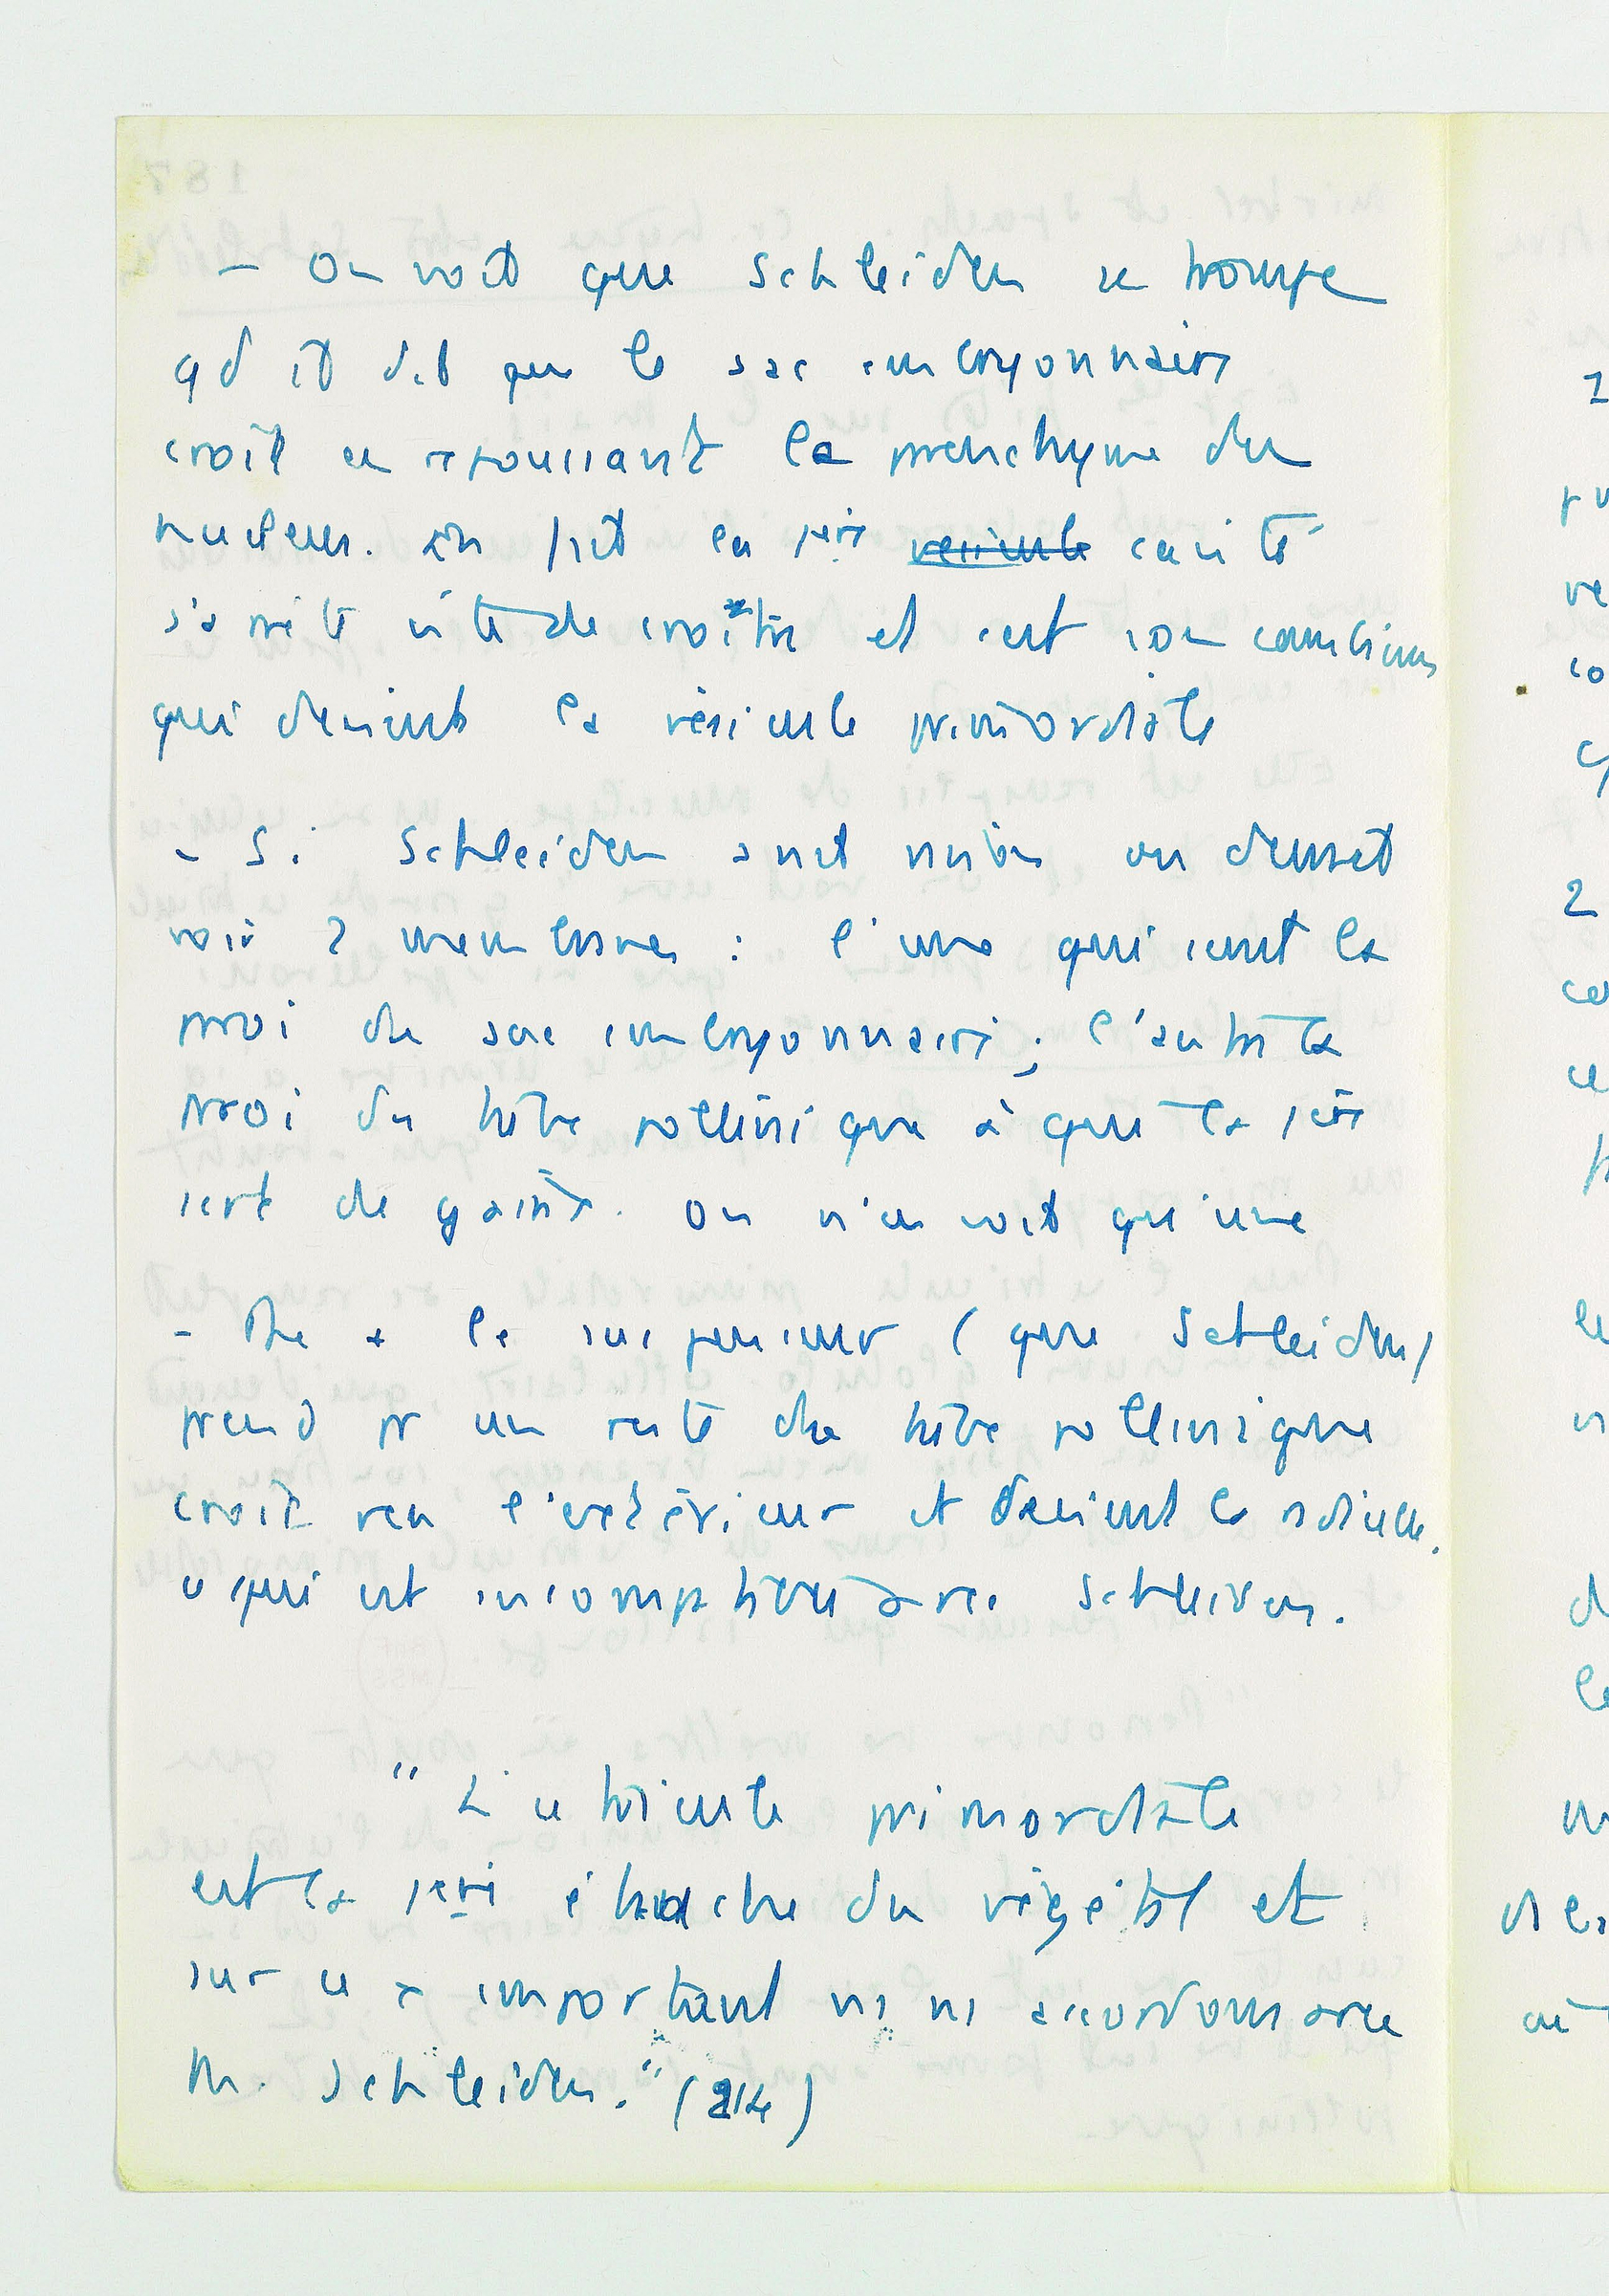 - On voit que Schleiden se trompe
qd il dit que le sac embryonnaire
croît en repoussant le parenchyme du
nucleus. En fait la 1ère vesicule cavité
s'arrête vite de croître et c'est son cambium
qui devient la vésicule primordiale
- Si Schleiden avait raison on devrait
voir 2 membranes : l'une qui serait la
paroi du sac embryonnaire ; l'autre la
paroi du tube pollinique à qui la 1ère
sert de gaine. On n'en voit qu'une
- De + le suspenseur (que Schleiden
prend pr un reste du tube pollinique
croît vers l'extérieur et devient la radicule.
ce qui est incompatible avec Schleiden.
" L'utricule primordiale
est la 1ère ébauche du végétal et
sur ce x important ns ns accordons avec
M. Schleiden." (214)
2